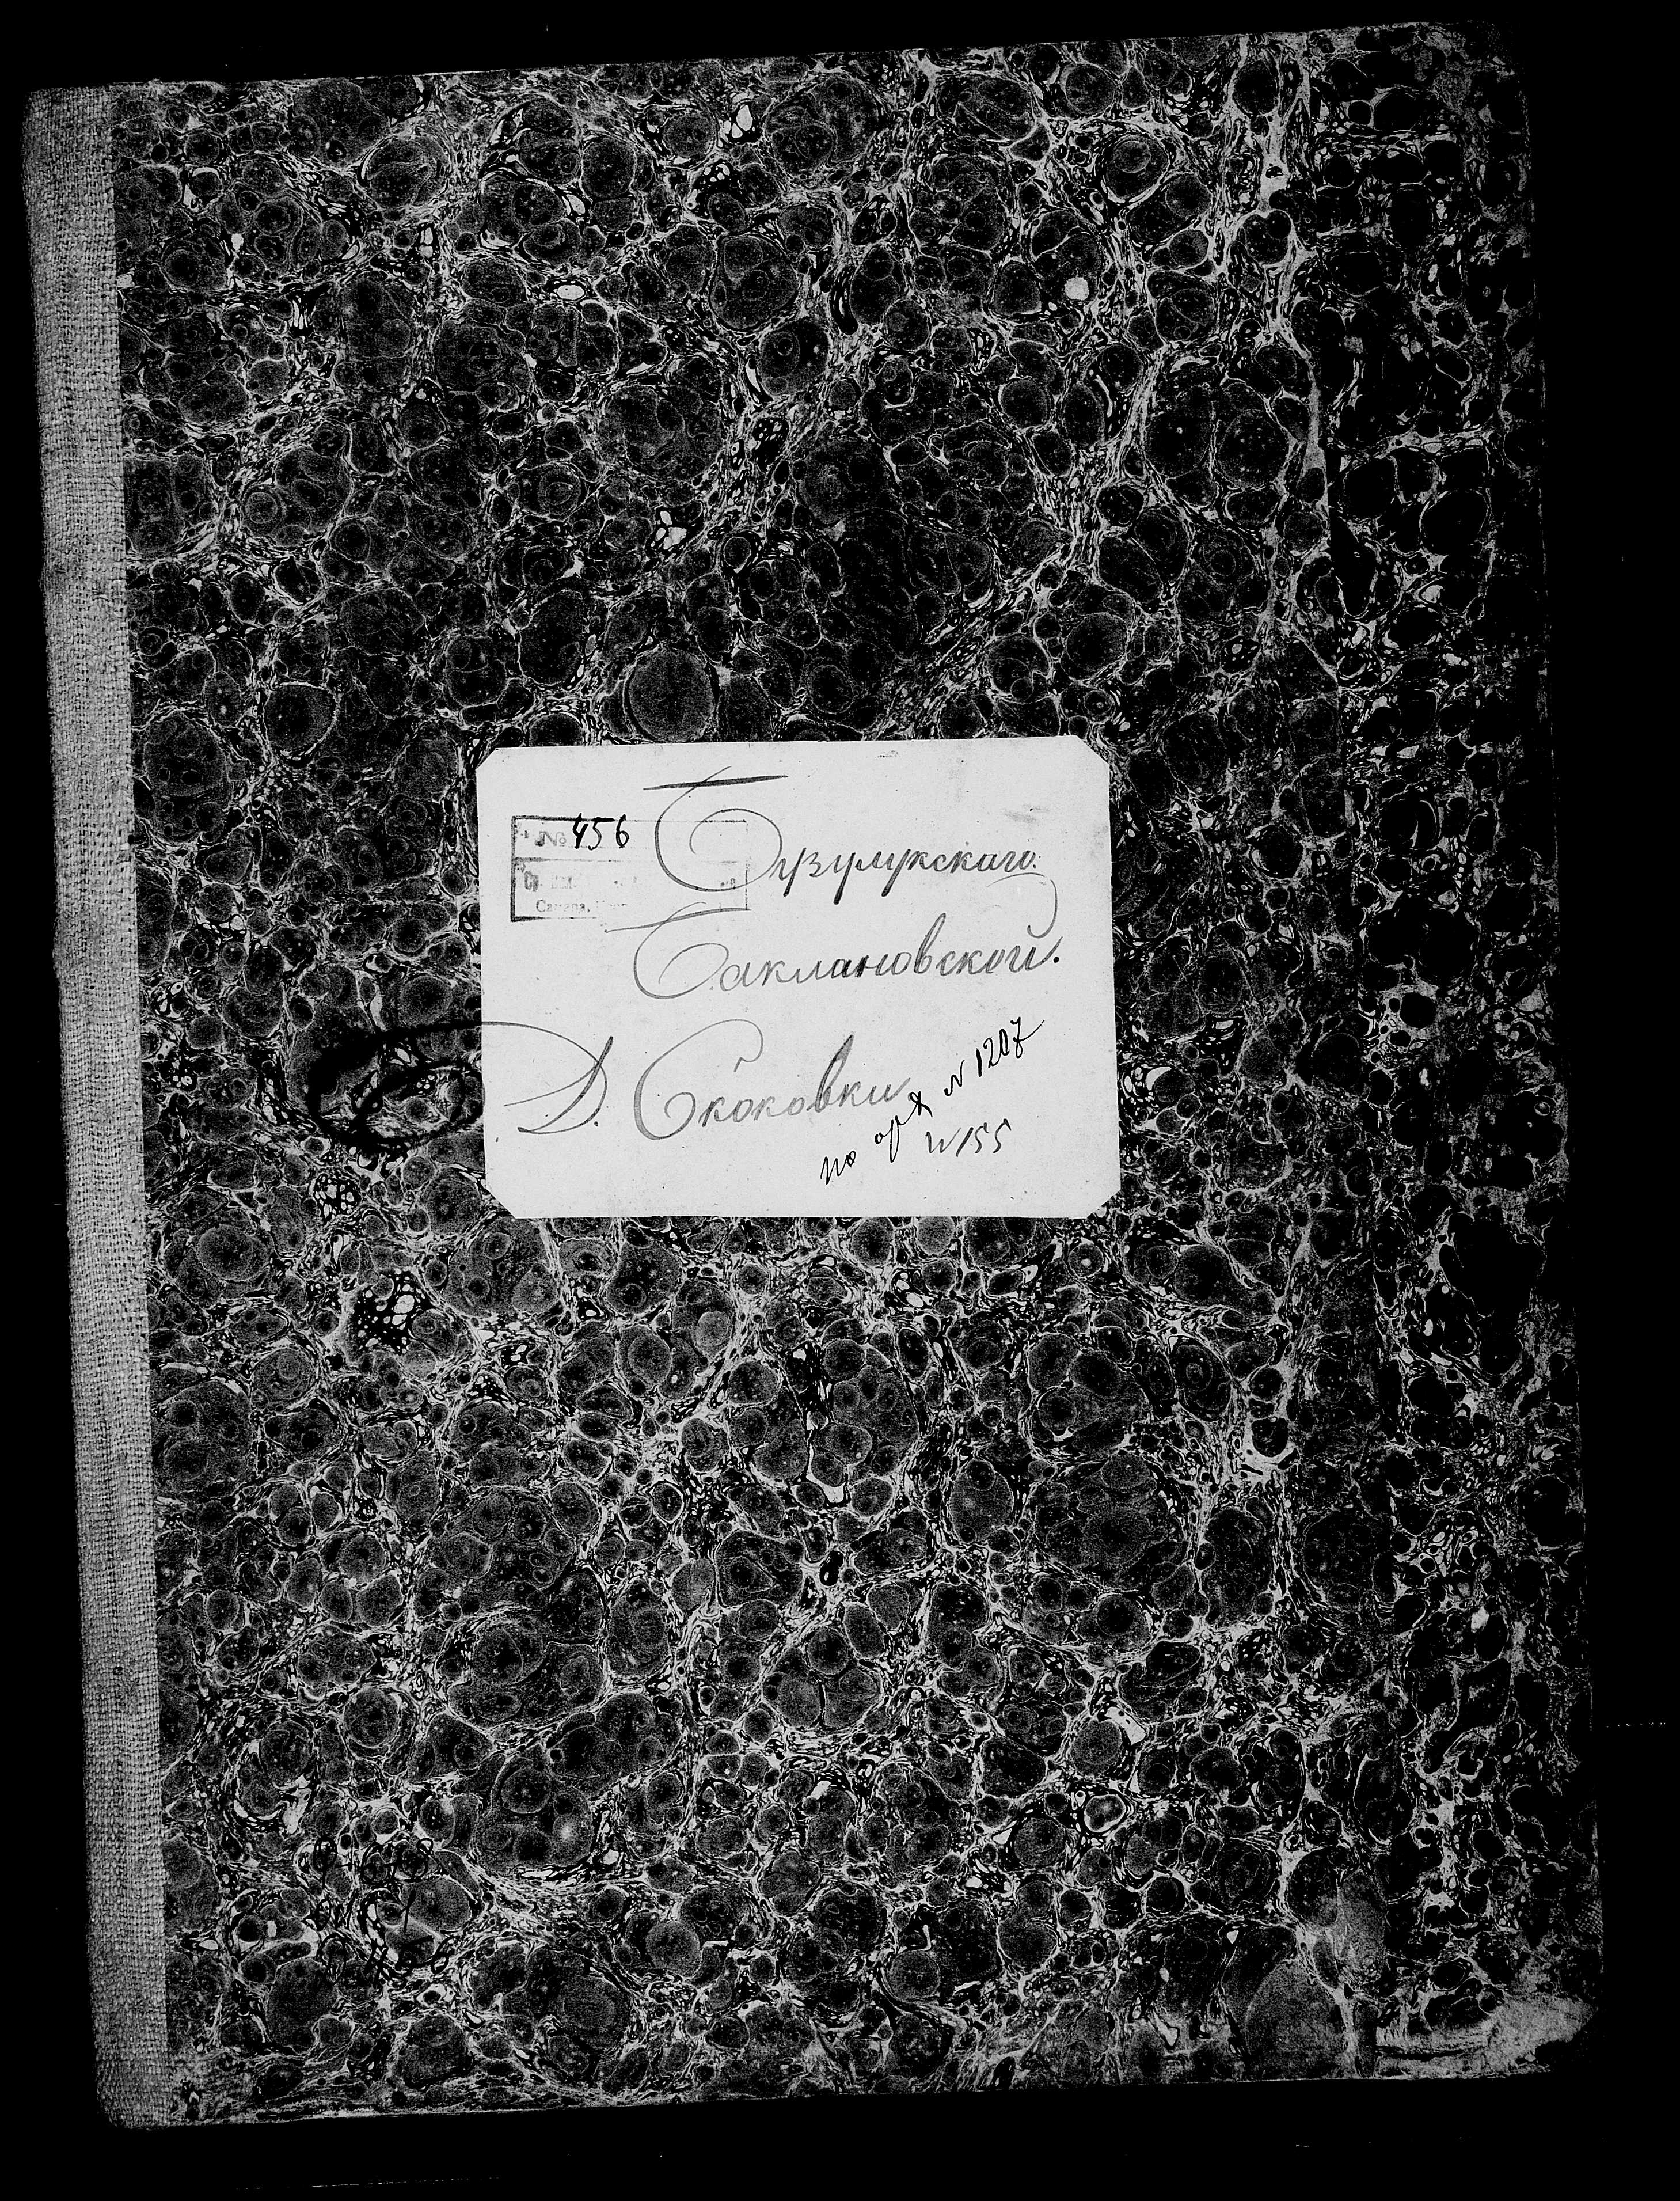 № 456
Бузулукскаго
Баклановской.
Д. Скоковки
по арх № 1207
№ 155